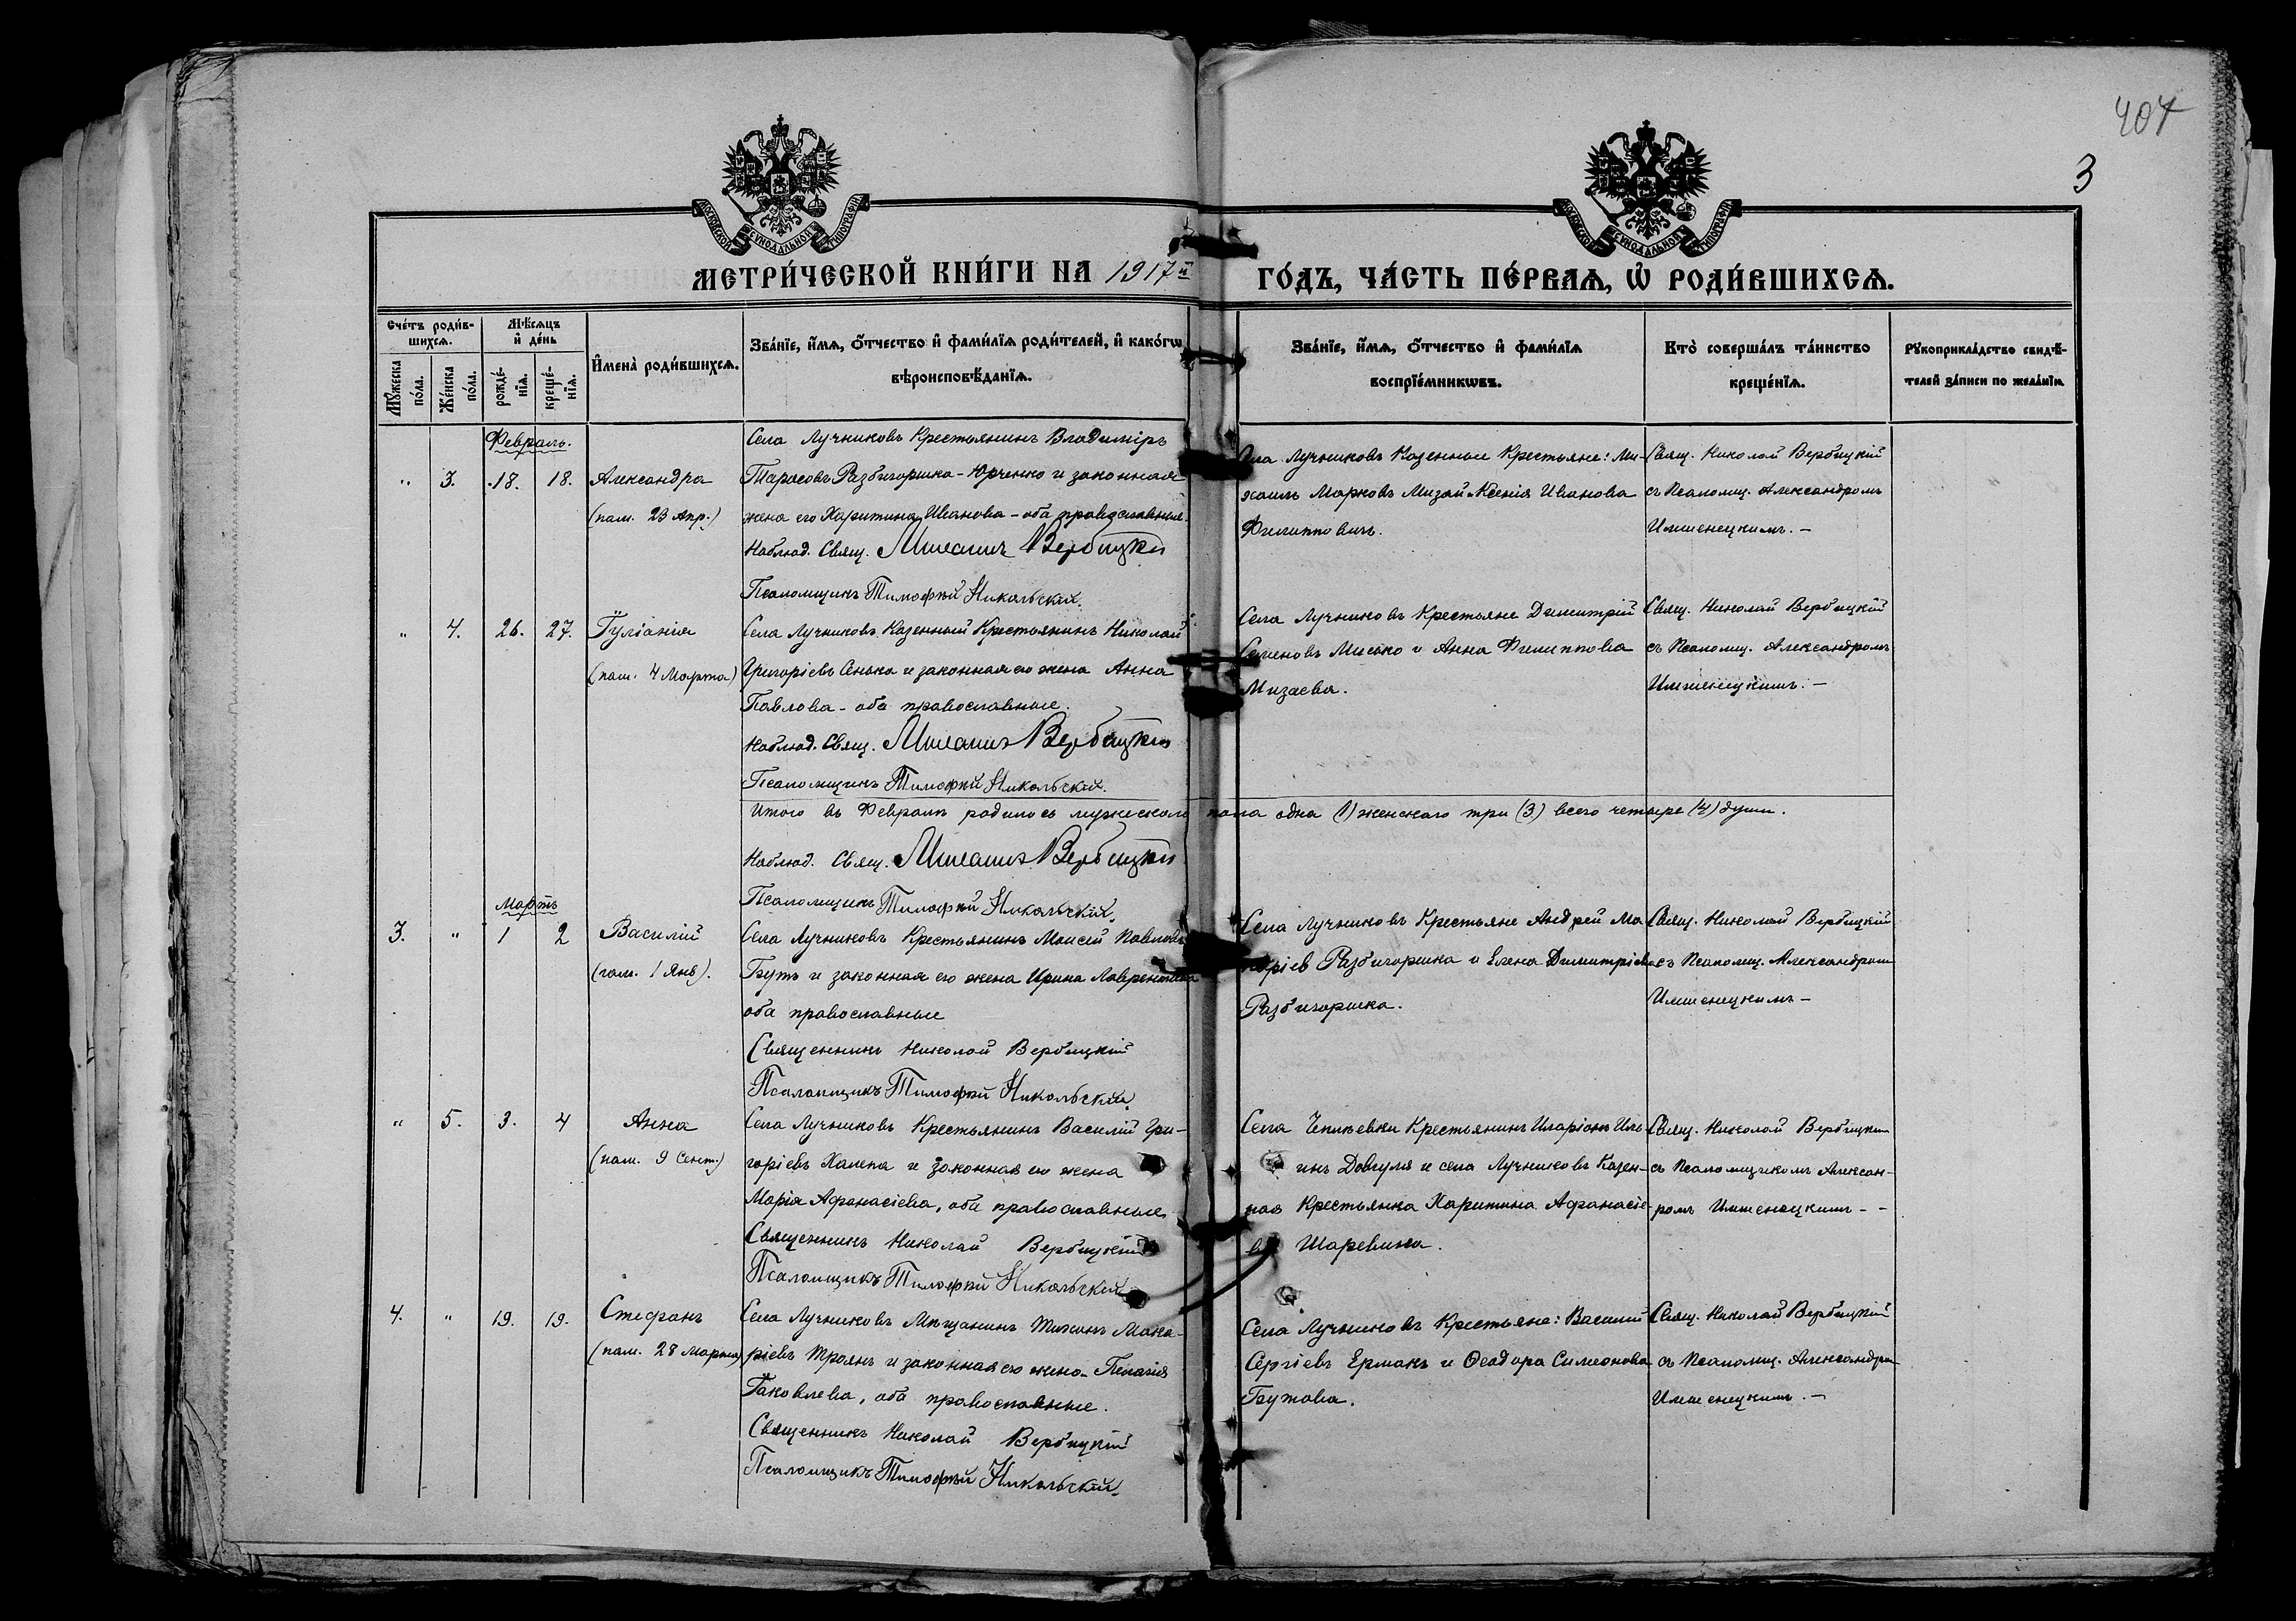 407
3
МОСКОВСКОЙ СѴНОДАЛЬНОЙ ТИПОГРАФІИ
МОСКОВСКОЙ СѴНОДАЛЬНОЙ ТИПОГРАФІИ
МЕТРИ́ЧЕСКОЙ КНИ́ГИ НА 1917й ГО́ДЪ, ЧА́СТЬ ПЕ́РВАѦ, Ѡ҆ РОДИ́ВШИХСѦ.
Сче́тъ роди́в-
шихсѧ.
Мѣ́сѧцъ
и҆ де́нь
Мꙋ́жеска по́ла.
Же́нска по́ла.
рожде́-
нїѧ.
креще́-
нїѧ.
И҆мена̀ роди́вшихсѧ.
Зва́нїе, и҆́мѧ, ѻ҆́тчество и҆ фами́лїѧ роди́телей, и҆ како́гѡ
вѣроисповѣ́данїѧ.
Зва́нїе, и҆́мѧ, ѻ҆́тчество и҆ фами́лїѧ
воспрїе́мникѡвъ.
Кто̀ соверша́лъ та́инство
креще́нїѧ.
Рꙋкоприкла́дство свидѣ́-
телей за́писи по жела́нїю
Февраль.
" 3. 18. 18. Александра
(пам. 23 Апр.)
Села Лучниковъ Крестьянинъ Владиміръ
Тарасовъ Разбигоршка-Юрченко и законная
жена его Харитина Иванова - оба православные.
Наблюд. Свящ. Вербицкій
Псаломщикъ Тимофѣй Никольскій.
Села Лучниковъ Казенные Крестьяне: Ми-
хаилъ Марковъ Мизай и Ксенія Иванова
Филипповичъ.
Свящ. Николай Вербицкій
съ Псаломщ. Александромъ
Имшенецкимъ. -
" 4. 26. 27. Іуліанія
(пам. 4 Марта)
Села Лучниковъ Казенный Крестьянинъ Николай
Григоріевъ Сенько и законная его жена Анна
Павлова - оба православные.
Наблюд. Свящ. Вербицкій
Псаломщикъ Тимофѣй Никольскій.
Села Лучниковъ Крестьяне Димитрій
Семеновъ Мисько и Анна Филиппова
Мизаева.
Свящ. Николай Вербицкій
съ Псаломщ. Александромъ
Имшенецкимъ. -
Итого въ Февралѣ родилось мужескаго пола одна (1) женскаго три (3) всего четыре (4) души.
Наблюд. Свящ. Вербицкій
Псаломщикъ Тимофѣй Никольскій.
Мартъ
3. " 1 2 Василій
(пам. 1 Янв).
Села Лучниковъ Крестьянинъ Моисей Павловъ
Бутъ и законная его жена Ирина Лаврентіева
оба православные
Священникъ Николай Вербицкій
Псаломщикъ Тимофѣй Никольскій.
Села Лучниковъ Крестьяне Андрей Ма-
каріев Разбигоршка и Елена Димитріева
Разбигоршка.
Свящ. Николай Вербицкій
съ Псаломщ. Александром
Имшенецкимъ -
" 5. 3. 4 Анна
(пам. 9 Сент.)
Села Лучниковъ Крестьянинъ Василій Гри-
горіевъ Халепа и законная его жена
Марія Афанасіева, оба православные.
Священникъ Николай Вербицкій
Псаломщикъ Тимофѣй Никольскій
Села Крестьянинъ Иларіонъ Иль-
инъ Довгуля и села Лучниковъ Казен-
ная Крестьянка Харитина Афанасіе-
ва
Свящ. Николай Вербицкій
съ Псаломщикомъ Алексан-
ромъ Имшенецкимъ - -
4. " 19. 19. Стефанъ
(пам. 28 Марта)
Села Лучниковъ Мѣщанинъ Тихонъ Мака-
ріевъ Троянъ и законная его жена Пелагія
Іаковлева, оба православные.
Священникъ Николай Вербицкій
Псаломщикъ Тимофѣй Никольскій.
Села Лучниковъ Крестьяне: Василій
Сергіевъ Ермакъ и Ѳеодора Симеонова
Бутова.
Свящ. Николай Вербицкій
съ Псаломщ. Александром
Имшенецким. -